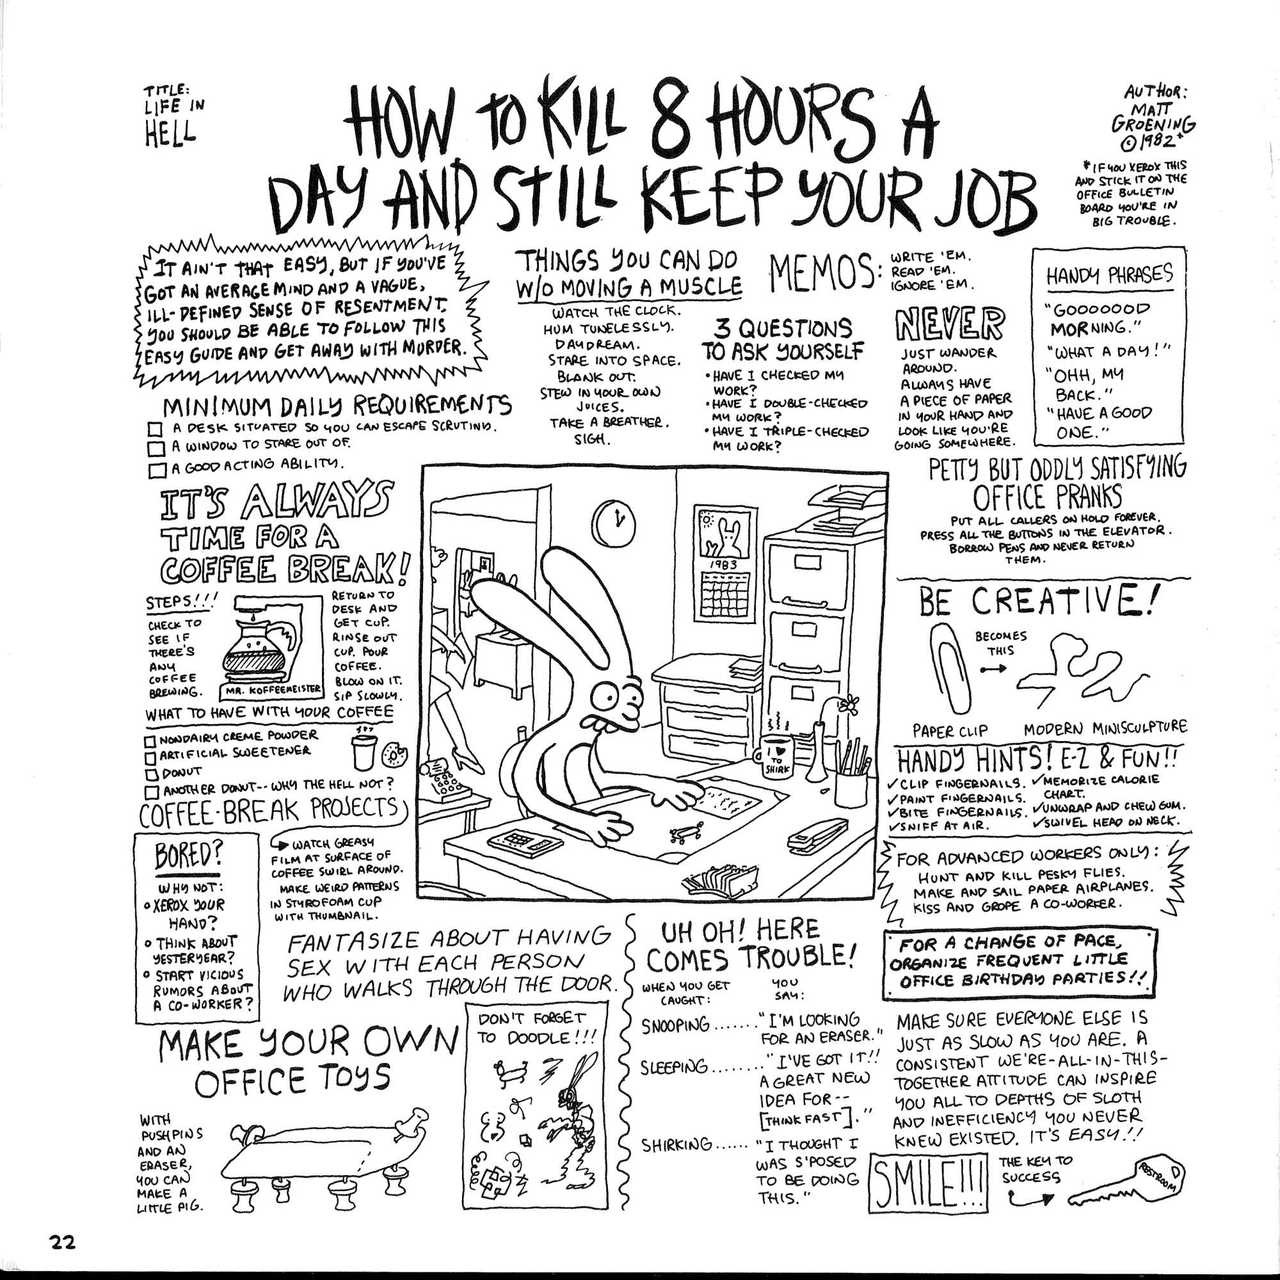 TITLE:
LIFE IN
HELL
HOW TO KILL 8 HOURS A
DAY AND STILL KEEP YOUR JOB
AUTHOR:
MATT
GROENING
©1982*
*IF YOU XEROX THIS
AND STICK IT ON THE
OFFICE BULLETIN
BOARD YOU'RE IN
BIG TROUBLE.
IT AIN'T THAT EASY, BUT IF YOU'VE
GOT AN AVERAGE MIND AND A VAGUE,
ILL-DEFINED SENSE OF RESENTMENT,
YOU SHOULD BE ABLE TO FOLLOW THIS
EASY GUIDE AND GET AWAY WITH MURDER.
MINIMUM DAILY REQUIREMENTS
A DESK SITUATED SO YOU CAN ESCAPE SCRUTINY.
A WINDOW TO STARE OUT OF.
A GOOD ACTING ABILITY.
THINGS YOU CAN DO
W/O MOVING A MUSCLE
WATCH THE CLOCK.
HUM TUNELESSLY.
DAYDREAM.
STARE INTO SPACE.
BLANK OUT.
STEW IN YOUR OWN
JUICES.
TAKE A BREATHER.
SIGH.
MEMOS:
WRITE 'EM.
READ 'EM.
IGNORE 'EM.
3 QUESTIONS
TO ASK YOURSELF
• HAVE I CHECKED MY
WORK?
• HAVE I DOUBLE-CHECKED
MY WORK?
• HAVE I TRIPLE-CHECKED
MY WORK?
NEVER
JUST WANDER
AROUND.
ALWAYS HAVE
A PIECE OF PAPER
IN YOUR HAND AND
LOOK LIKE YOU'RE
GOING SOMEWHERE.
HANDY PHRASES
"GOOOOOOD
MORNING."
"WHAT A DAY!"
"OHH, MY
BACK."
"HAVE A GOOD
ONE."
PETTY BUT ODDLY SATISFYING
OFFICE PRANKS
PUT ALL CALLERS ON HOLD FOREVER.
PRESS ALL THE BUTTONS IN THE ELEVATOR.
BORROW PENS AND NEVER RETURN
THEM.
IT'S ALWAYS
TIME FOR A
COFFEE BREAK!
STEPS!!!
CHECK TO
SEE IF
THERE'S
ANY
COFFEE
BREWING.
MR. KOFFEEMEISTER
RETURN TO
DESK AND
GET CUP.
RINSE OUT
CUP. POUR
COFFEE.
BLOW ON IT.
SIP SLOWLY.
WHAT TO HAVE WITH YOUR COFFEE
NONDAIRY CREME POWDER
ARTIFICIAL SWEETENER
DONUT
ANOTHER DONUT--WHY THE HELL NOT?
COFFEE-BREAK PROJECTS
WATCH GREASY
FILM AT SURFACE OF
COFFEE SWIRL AROUND.
MAKE WEIRD PATTERNS
IN STYROFOAM CUP
WITH THUMBNAIL.
BORED?
WHY NOT:
° XEROX YOUR
HAND?
° THINK ABOUT
YESTERYEAR?
° START VICIOUS
RUMORS ABOUT
A CO-WORKER?
1983
I ♥
TO
SHIRK
BE CREATIVE!
BECOMES
THIS
PAPER CLIP
MODERN MINISCULPTURE
HANDY HINTS! E-Z & FUN!!
✓CLIP FINGERNAILS.
✓PAINT FINGERNAILS.
✓BITE FINGERNAILS.
✓SNIFF AT AIR.
✓MEMORIZE CALORIE
CHART.
✓UNWRAP AND CHEW GUM.
✓SWIVEL HEAD ON NECK.
FOR ADVANCED WORKERS ONLY:
HUNT AND KILL PESKY FLIES.
MAKE AND SAIL PAPER AIRPLANES.
KISS AND GROPE A CO-WORKER.
FOR A CHANGE OF PACE,
ORGANIZE FREQUENT LITTLE
OFFICE BIRTHDAY PARTIES!!
FANTASIZE ABOUT HAVING
SEX WITH EACH PERSON
WHO WALKS THROUGH THE DOOR.
UH OH! HERE
COMES TROUBLE!
WHEN YOU GET
CAUGHT:
YOU
SAY:
SNOOPING......."I'M LOOKING
FOR AN ERASER."
SLEEPING........"I'VE GOT IT!!
A GREAT NEW
IDEA FOR--
[THINK FAST]."
SHIRKING......"I THOUGHT I
WAS S'POSED
TO BE DOING
THIS."
MAKE YOUR OWN
OFFICE TOYS
WITH
PUSHPINS
AND AN
ERASER,
YOU CAN
MAKE A
LITTLE PIG.
DON'T FORGET
TO DOODLE!!!
MAKE SURE EVERYONE ELSE IS
JUST AS SLOW AS YOU ARE. A
CONSISTENT WE'RE-ALL-IN-THIS-
TOGETHER ATTITUDE CAN INSPIRE
YOU ALL TO DEPTHS OF SLOTH
AND INEFFICIENCY YOU NEVER
KNEW EXISTED. IT'S EASY!!
SMILE!!!
THE KEY TO
SUCCESS
RESTROOM
22